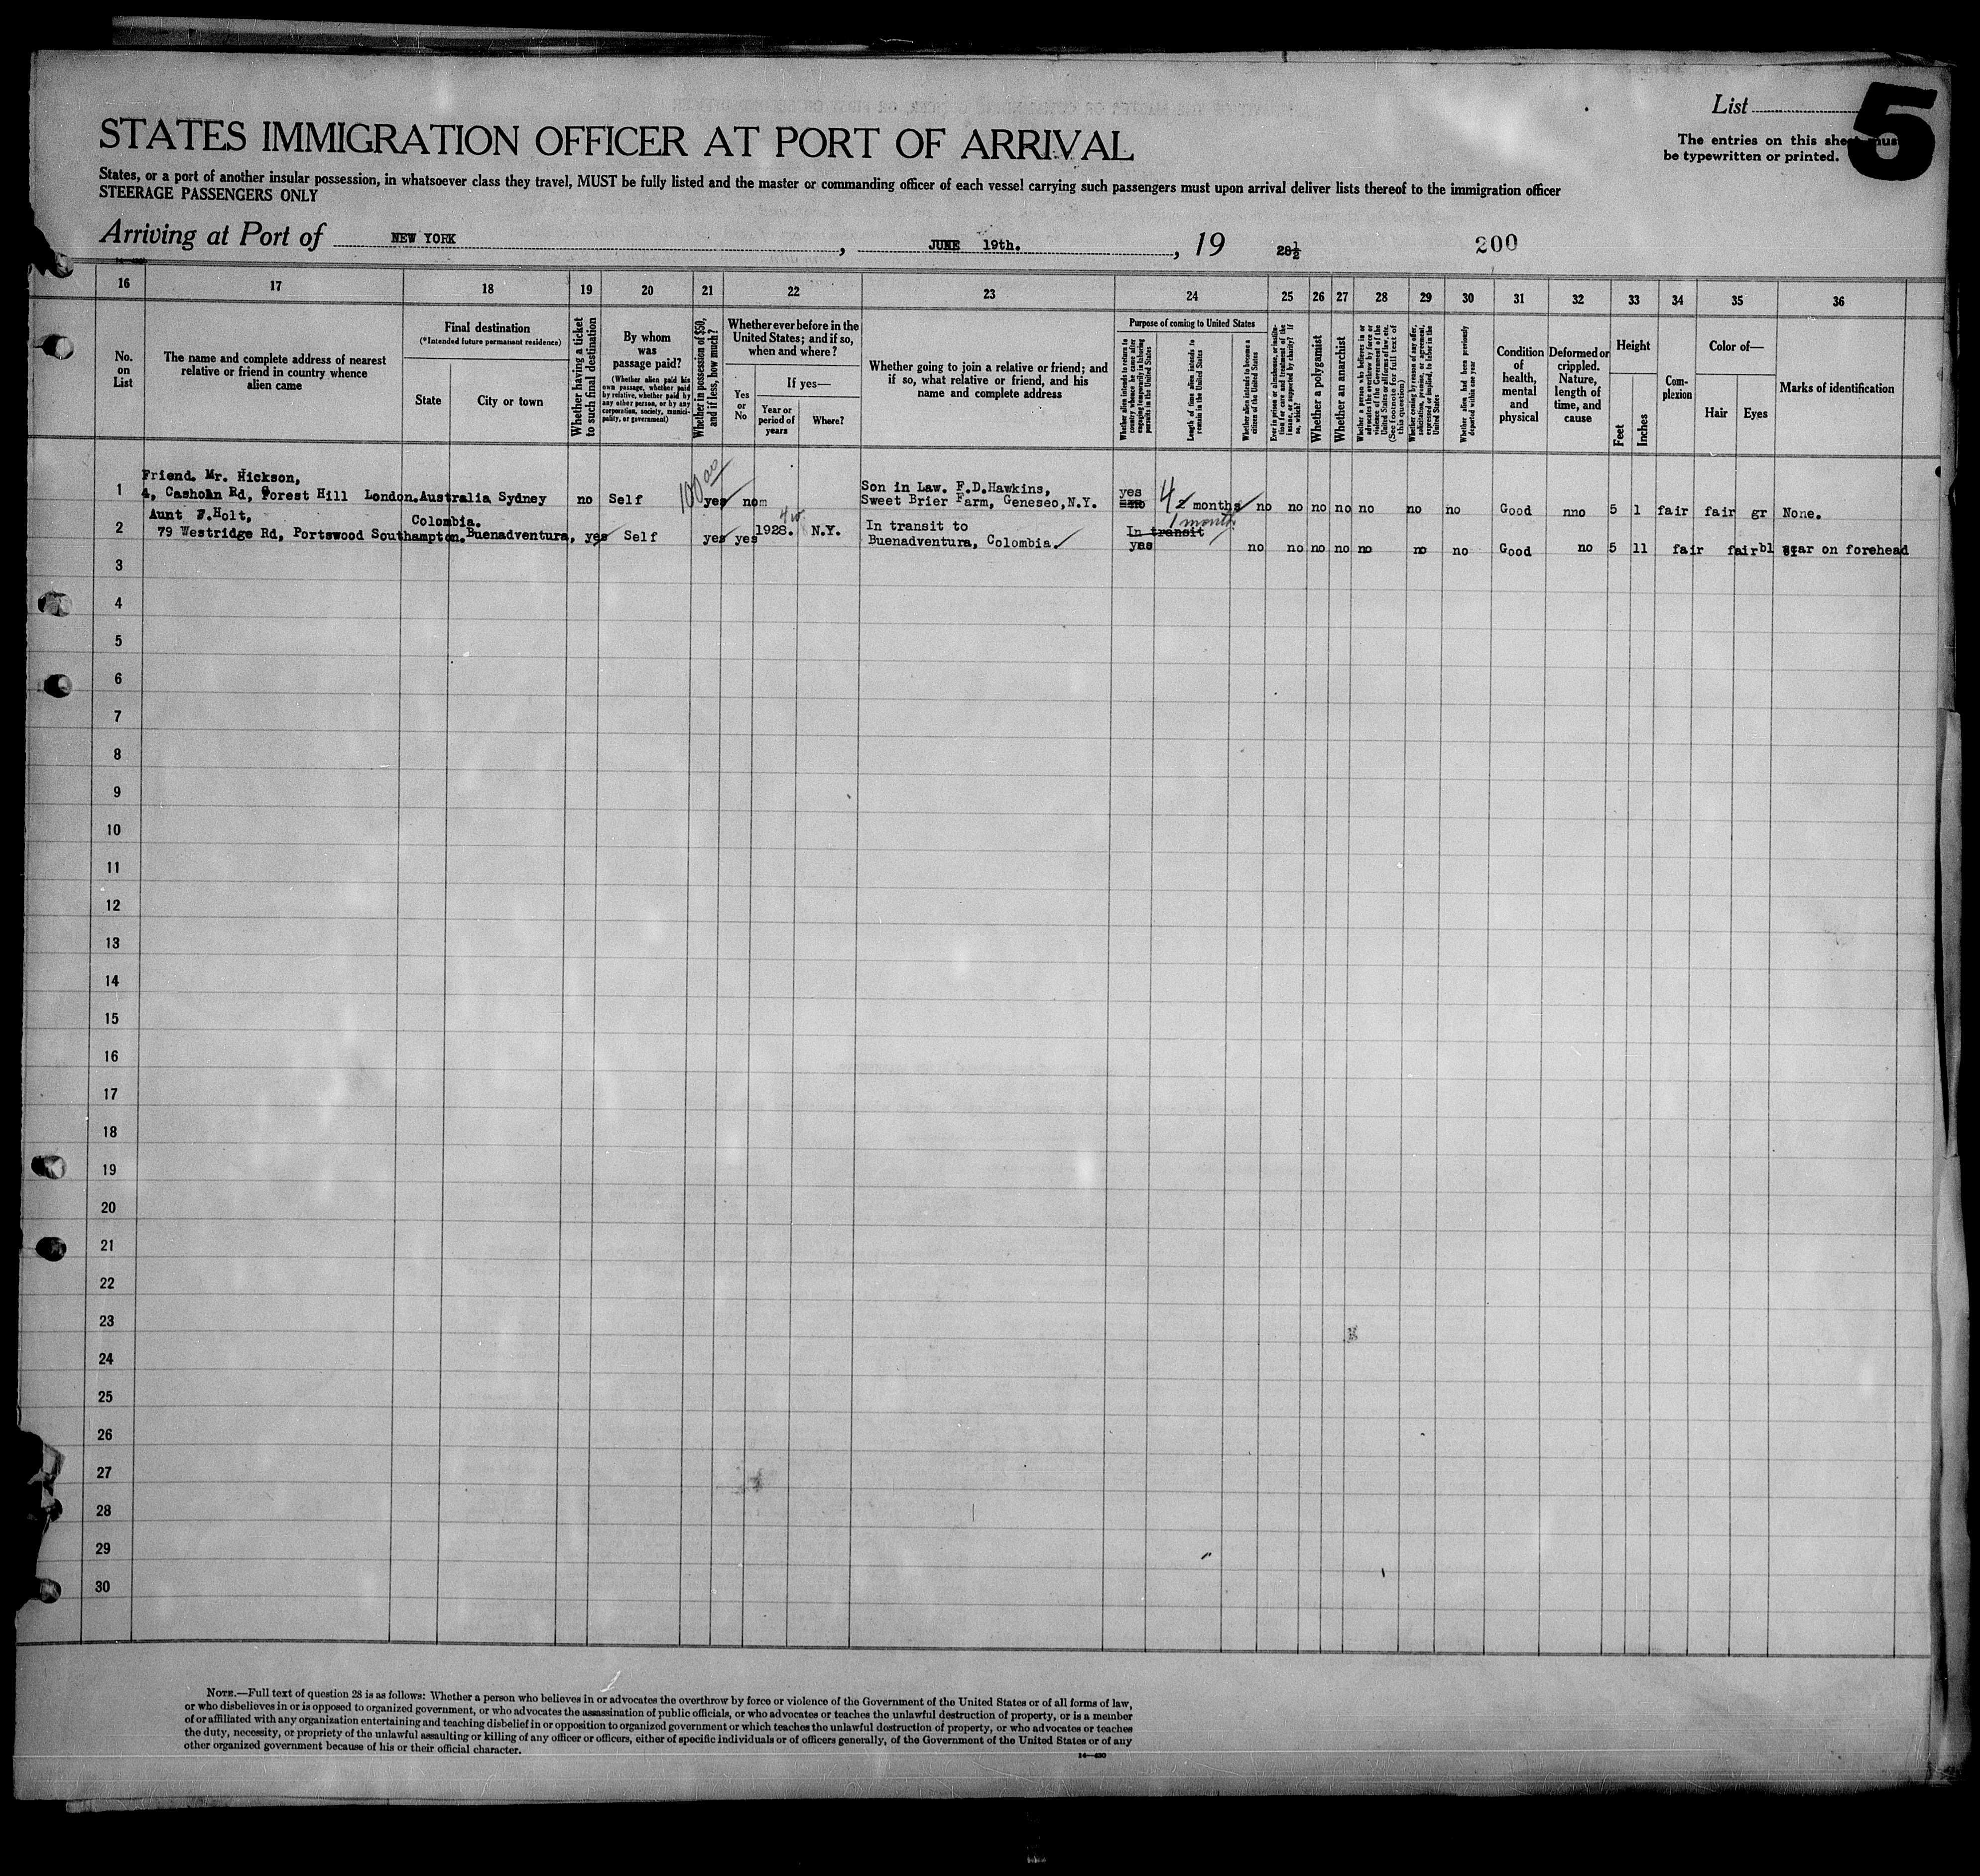 List
5
The entries on this sheet must
be typewritten or printed.
STATES IMMIGRATION OFFICER AT PORT OF ARRIVAL
States, or a port of another insular possession, in whatsoever class they travel, MUST be fully listed and the master or commanding officer of each vessel carrying such passengers must upon arrival deliver lists thereof to the immigration officer
STEERAGE PASSENGERS ONLY
Arriving at Port of NEW YORK, JUNE 19th., 19 28½ 200
16 17 18 19 20 21 22 23 24 25 26 27 28 29 30 31 32 33 34 35 36
No.
on
List
The name and complete address of nearest
relative or friend in country whence
alien came
Final destination
(*Intended future permanent residence)
State
City or town
Whether having a ticket
to such final destination
By whom
was
passage paid?
(Whether alien paid his
own passage, whether paid
by relative, whether paid by
any other person, or by any
corporation, society, munici-
pality, or government)
Whether in possession of $50,
and if less, how much?
Whether ever before in the
United States; and if so,
when and where?
Yes
or
No
If yes—
Year or
period of
years
Where?
Whether going to join a relative or friend; and
if so, what relative or friend, and his
name and complete address
Purpose of coming to United States
Whether alien intends to return to
country whence he came after
engaging temporarily in laboring
pursuits in the United States
Length of time alien intends to
remain in the United States
Whether alien intends to become a
citizen of the United States
Ever in prison or almshouse, or institu-
tion for care and treatment of the
insane, or supported by charity? If
so, which?
Whether a polygamist
Whether an anarchist
Whether a person who believes in or
advocates the overthrow by force or
violence of the Government of the
United States or all forms of law, etc.
(See footnote for full text of
this question)
Whether coming by reason of any offer,
solicitation, promise, or agreement,
expressed or implied, to labor in the
United States
Whether alien had been previously
deported within one year
Condition
of
health,
mental
and
physical
Deformed or
crippled.
Nature,
length of
time, and
cause
Height
Feet
Inches
Com-
plexion
Color of—
Hair
Eyes
Marks of identification
Friend. Mr. Hickson, 100.00 Son in Law. F.D.Hawkins, yes
1 4, Rd, Forest Hill London. Australia Sydney no Self yes no Sweet Brier Farm, Geneseo,N.Y. no 4 2 months no no no no no no no Good nno 5 1 fair fair gr None.
Aunt F.Holt, Colombia. In transit to 1 month In transit
2 79 Westridge Rd, Portswood Southampton. Buenadventura, yes Self yes yes 1928. N.Y. Buenadventura, Colombia. yes no no no no no no no Good no 5 11 fair fair bl scar on forehead
3
4
5
6
7
8
9
10
11
12
13
14
15
16
17
18
19
20
21
22
23
24
25
26
27
28
29
30
NOTE.—Full text of question 28 is as follows: Whether a person who believes in or advocates the overthrow by force or violence of the Government of the United States or of all forms of law,
or who disbelieves in or is opposed to organized government, or who advocates the assassination of public officials, or who advocates or teaches the unlawful destruction of property, or is a member
of or affiliated with any organization entertaining and teaching disbelief in or opposition to organized government or which teaches the unlawful destruction of property, or who advocates or teaches
the duty, necessity, or propriety of the unlawful assaulting or killing of any officer or officers, either of specific individuals or of officers generally, of the Government of the United States or of any
other organized government because of his or their official character.
14—430